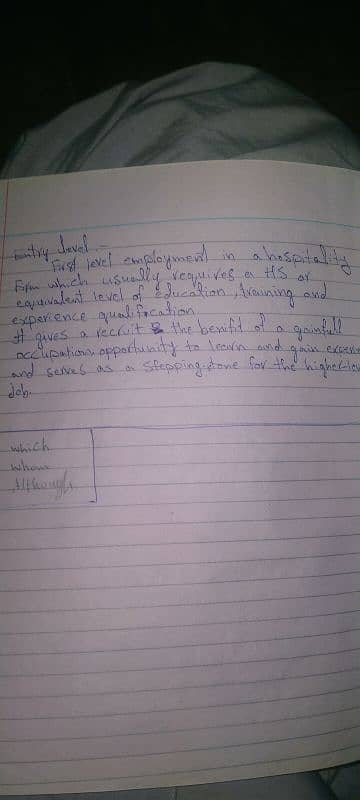 entry level :-
First level employment in a hospitality
firm which usually requires a HS or
equivalent level of education, training and
experience qualification.
It gives a recruit the benifit of a gainfull
occupation, opportunity to learn and gain
and serves as a stepping-stone for the higher-
Job.
which
whom
Although